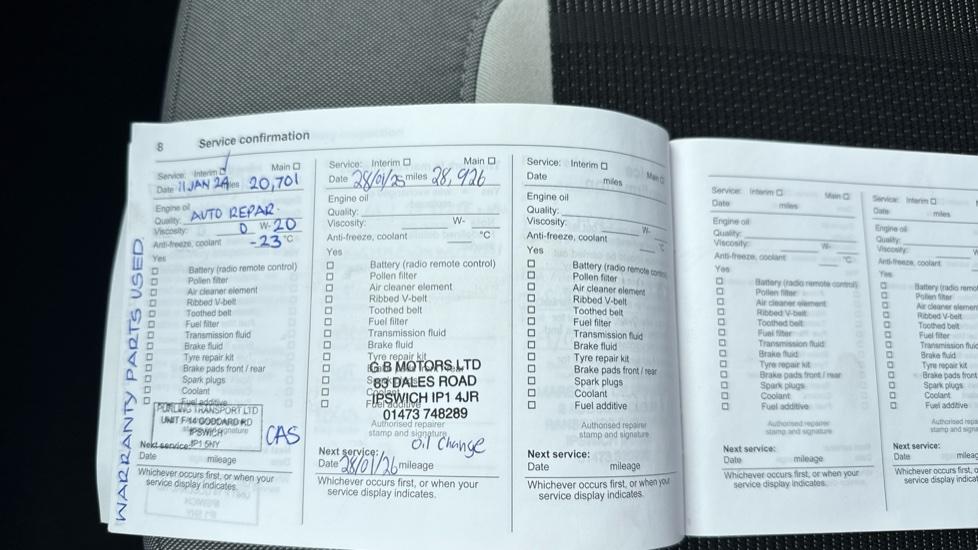 8 Service confirmation
Service: Interim Main
Date 11 JAN 24 miles 20,701
Engine oil
Quality: AUTO REPAR.
Viscosity: 0 W- 20
Anti-freeze, coolant -23 °C
Yes
Battery (radio remote control)
Pollen filter
Air cleaner element
Ribbed V-belt
Toothed belt
Fuel filter
Transmission fluid
Brake fluid
Tyre repair kit
Brake pads front / rear
Spark plugs
Coolant
Fuel additive
PURLING TRANSPORT LTD
UNIT F/14 GODDARD RD
IPSWICH
IP1 5NY
stamp and signature
CAS
Next service:
Date mileage
Whichever occurs first, or when your
service display indicates.
WARRANTY PARTS USED
Service: Interim Main
Date 28/01/25 miles 28,926
Engine oil
Quality:
Viscosity: W-
Anti-freeze, coolant °C
Yes
Battery (radio remote control)
Pollen filter
Air cleaner element
Ribbed V-belt
Toothed belt
Fuel filter
Transmission fluid
Brake fluid
Tyre repair kit
G B MOTORS LTD
83 DALES ROAD
IPSWICH IP1 4JR
01473 748289
Authorised repairer
stamp and signature
Oil change
Next service:
Date 28/01/26 mileage
Whichever occurs first, or when your
service display indicates.
Service: Interim Main
Date miles
Engine oil
Quality:
Viscosity: W-
Anti-freeze, coolant °C
Yes
Battery (radio remote control)
Pollen filter
Air cleaner element
Ribbed V-belt
Toothed belt
Fuel filter
Transmission fluid
Brake fluid
Tyre repair kit
Brake pads front / rear
Spark plugs
Coolant
Fuel additive
Authorised repairer
stamp and signature
Next service:
Date mileage
Whichever occurs first, or when your
service display indicates.
Service: Interim Main
Date miles
Engine oil
Quality:
Viscosity: W-
Anti-freeze, coolant °C
Yes
Battery (radio remote control)
Pollen filter
Air cleaner element
Ribbed V-belt
Toothed belt
Fuel filter
Transmission fluid
Brake fluid
Tyre repair kit
Brake pads front / rear
Spark plugs
Coolant
Fuel additive
Authorised repairer
stamp and signature
Next service:
Date mileage
Whichever occurs first, or when your
service display indicates.
Service: Interim
Date miles
Engine oil
Quality:
Viscosity: W
Anti-freeze, coolant
Yes
Battery (radio remo
Pollen filter
Air cleaner elemen
Ribbed V-belt
Toothed belt
Fuel filter
Transmission fluid
Brake fluid
Tyre repair kit
Brake pads front
Spark plugs
Coolant
Fuel additive
Authorised repa
stamp and sign
Next service:
Date mileag
Whichever occurs first, o
service display indicat